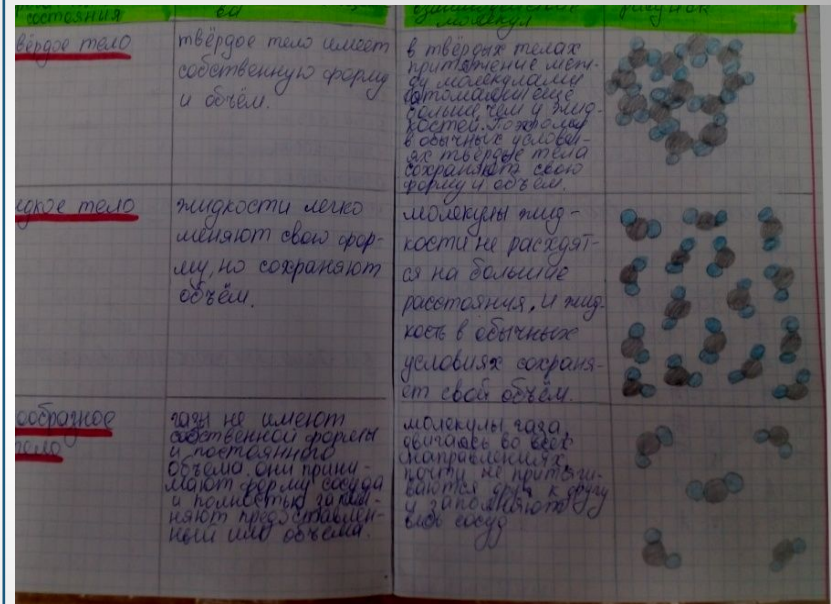 состояния
молекул
рисунок
вёрдое тело
твёрдое тело имеет
собственную форму
и объём.
в твёрдых телах
притяжение меж-
ду молекулами
(атомами) ещё
больше, чем у жид-
костей. Поэтому
в обычных услови-
ях твёрдые тела
сохраняют свою
форму и объём.
дкое тело
жидкости легко
меняют свою фор-
му, но сохраняют
объём.
молекулы жид-
кости не расходят-
ся на большие
расстояния, и жид-
кость в обычных
условиях сохраня-
ет свой объём.
ообразное
тело
газы не имеют
собственной формы
и постоянного
объёма. они прини-
мают форму сосуда
и полностью запол-
няют предоставлен-
ный им объём.
молекулы газа,
двигаясь во всех
направлениях,
почти не притяги-
ваются друг к другу
и заполняют
весь сосуд